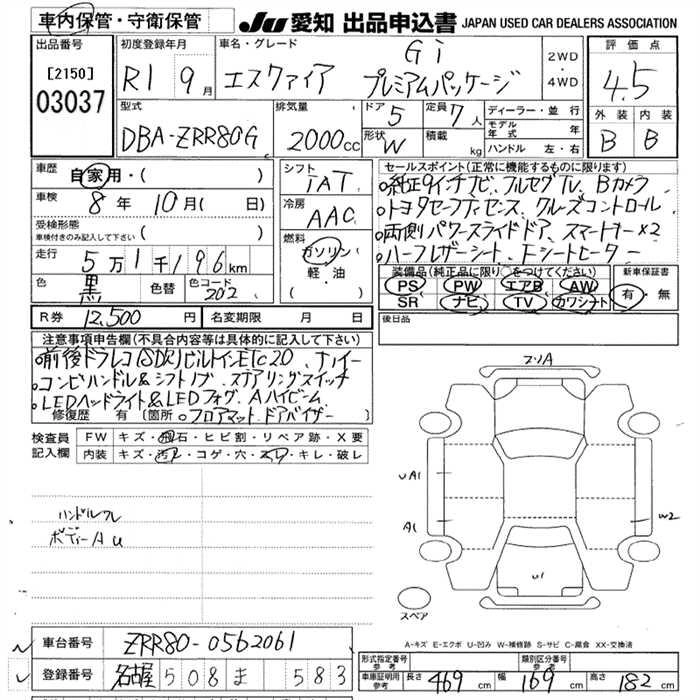 車内保管・守衛保管
JU 愛知 出品申込書 JAPAN USED CAR DEALERS ASSOCIATION
出品番号
[2150]
03037
初度登録年月
R1 9月
車名・グレード
Gi
エスクァイア プレミアムパッケージ
2WD
・
4WD
評価点
4.5
外装 内装
B B
型式
DBA-ZRR80G
排気量
2000cc
ドア 5
定員 7人
形状 W
積載 kg
ディーラー・並行
モデル年式 年
ハンドル 左・右
車歴
自家用・( )
車検
8年10月( 日)
受検形態
車検付きのみ記入して下さい ( )
走行
5万1千196km
色
黒
色替
色コード
202
シフト
IAT
冷房
AAC
燃料
ガソリン
・
軽・油
( )
セールスポイント(正常に機能するものに限ります)
○純正9インチナビ、フルセグTV、Bカメラ
○トヨタセーフティセンス、クルーズコントロール
○両側パワースライドドア、スマートキー×2
○ハーフレザーシート、Fシートヒーター
装備品(純正品に限り○をつけてください)
PS PW エアB AW
SR ナビ TV カワシート
新車保証書
有・無
R券 12,500円
名変期限 月 日
後日品
注意事項申告欄(不具合内容等は具体的に記入して下さい)
○前後ドラレコ(SDK)ビルトインETC2.0
○コンビハンドル&シフトノブ ステアリングスイッチ
○LEDヘッドライト&LEDフォグ、Aハイビーム
修復歴 有 [箇所 ○フロアマット、ドアバイザー ]
検査員記入欄
FW キズ・飛石・ヒビ割・リペア跡・X要
内装 キズ・汚レ・コゲ・穴・スレ・キレ・破レ
ハンドルスレ
ボディーAU
フリA
UA1
A1
W2
U1
スペア
A-キズ E-エクボ U-凹み W-補修跡 S-サビ C-腐食 XX-交換済
車台番号 ZRR80-0562061
登録番号 名古屋 508 ま 583
形式指定番号
参考
類別区分番号
参考
車庫証明用
参考
長さ 469cm 幅 169cm 高さ 182cm